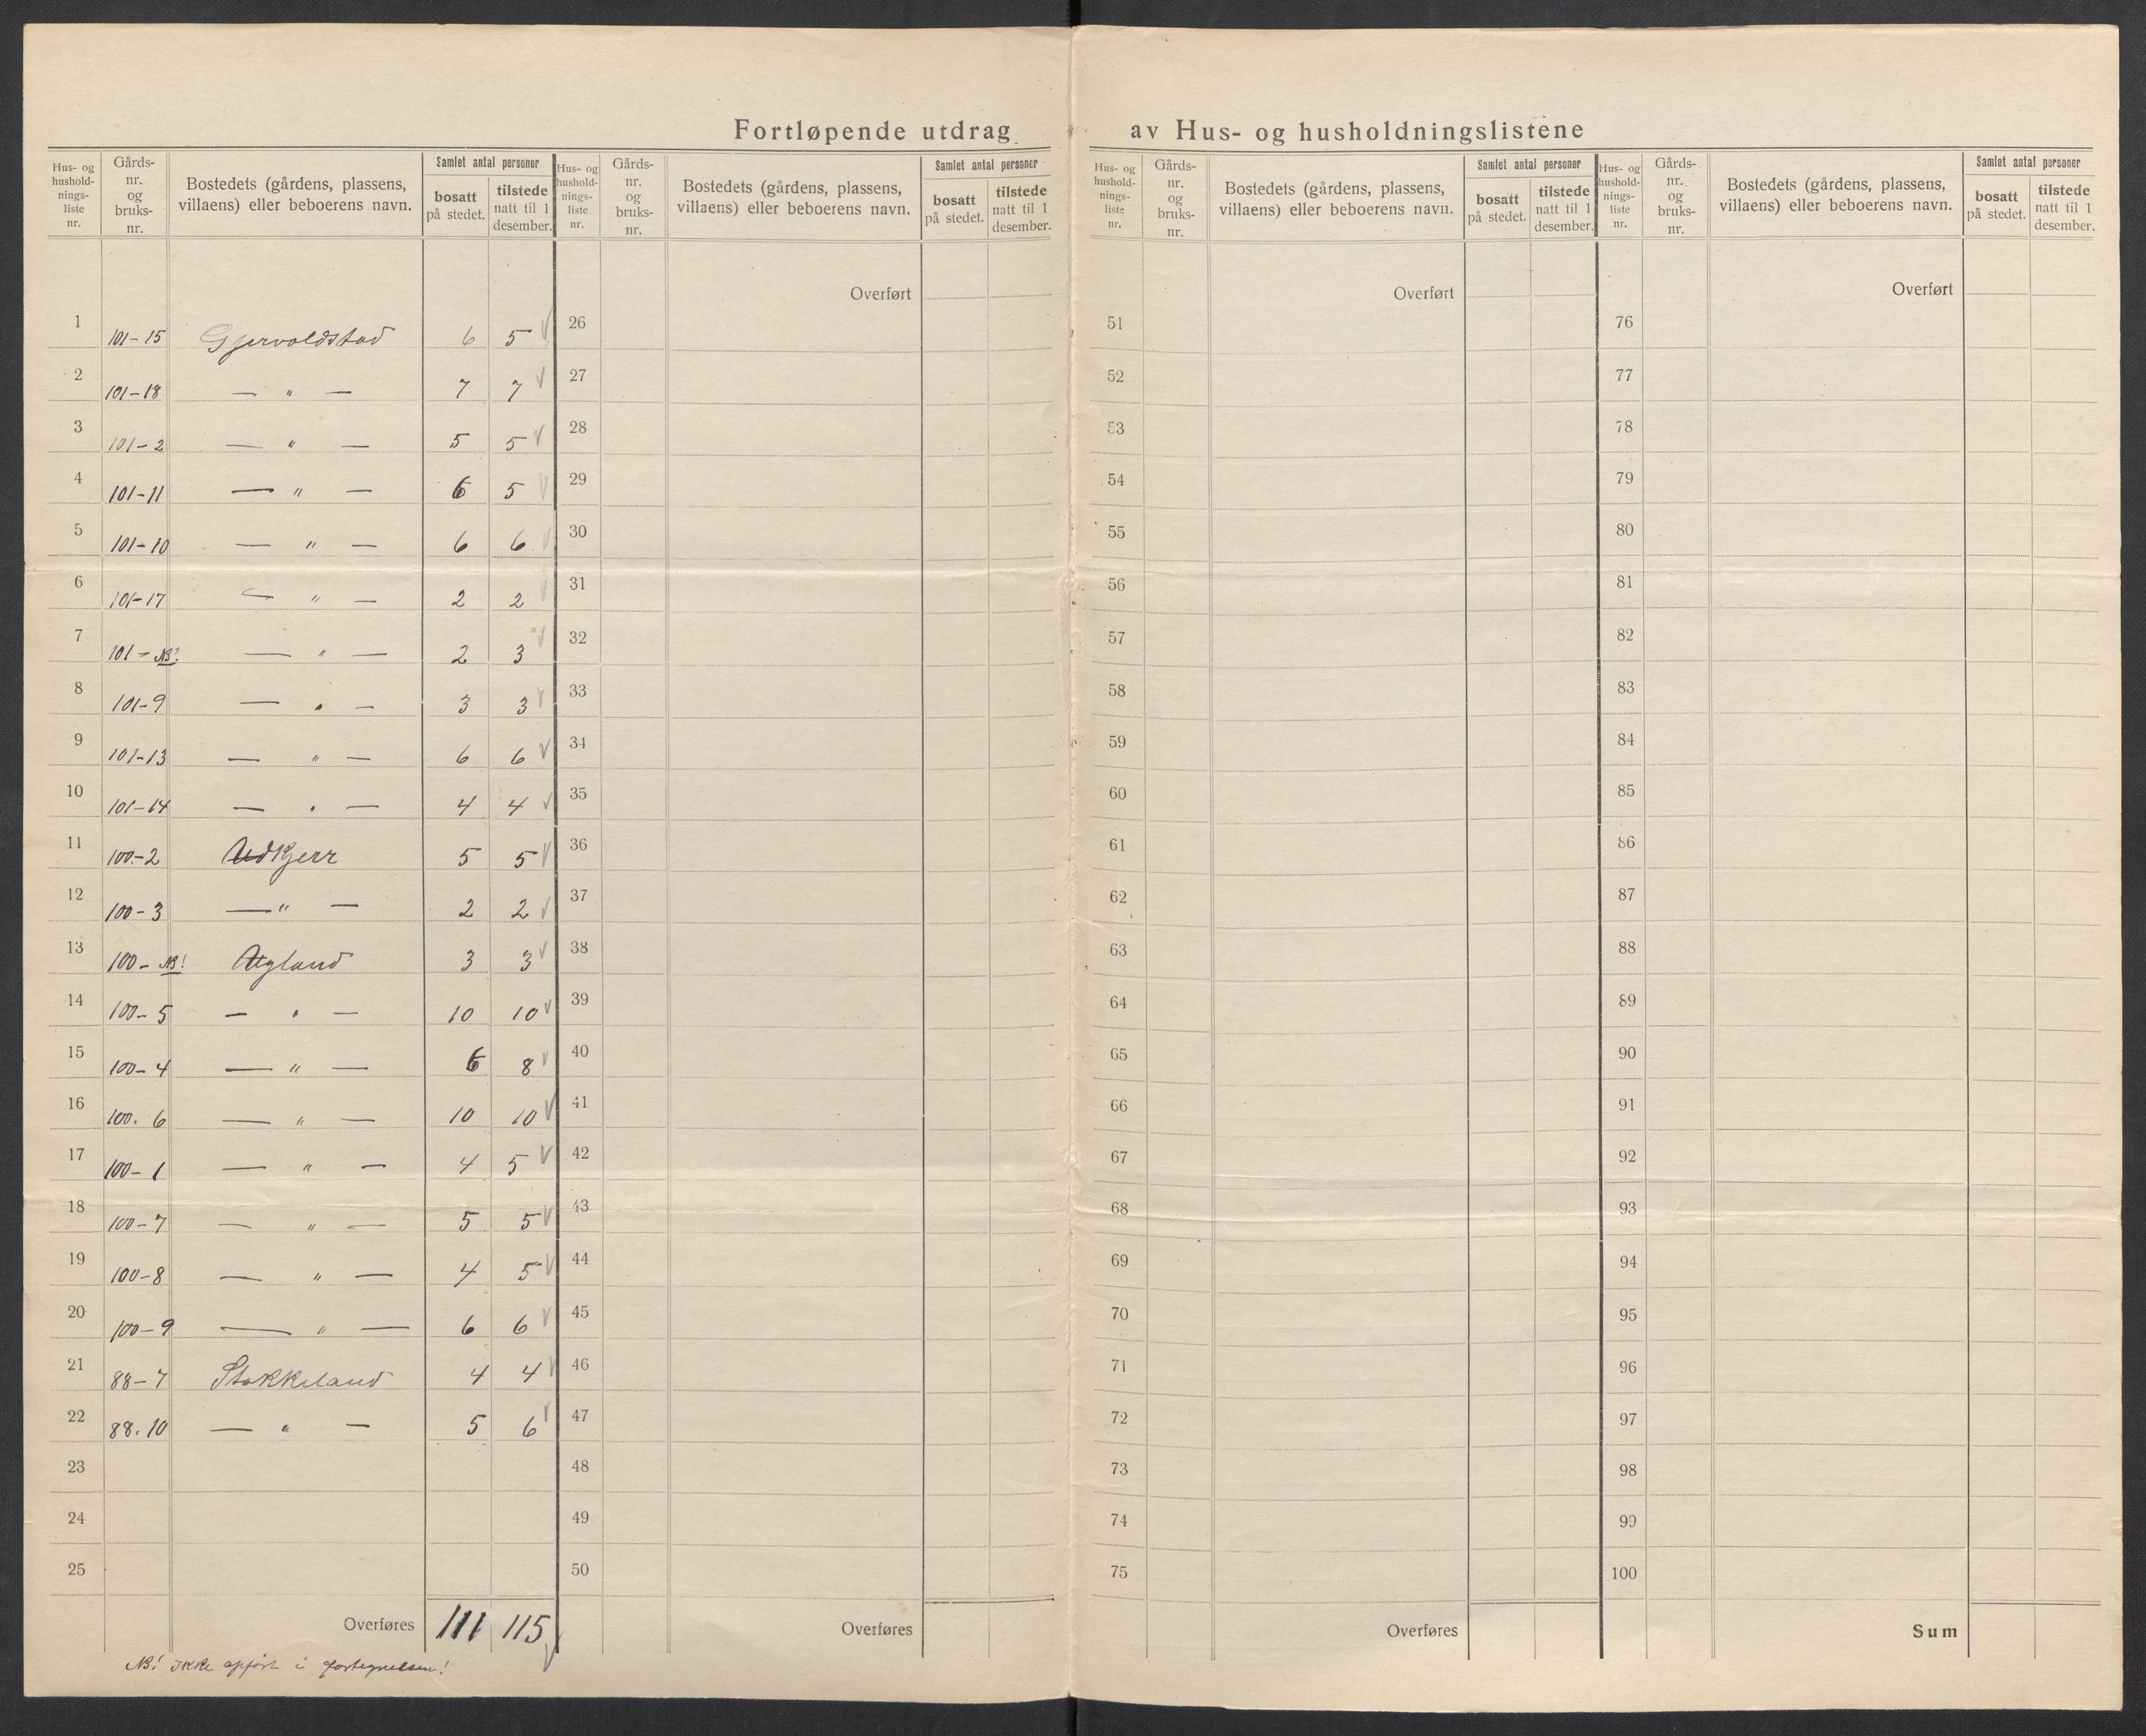 Fortløpende utdrag av Hus- og husholdningslistene
Hus- og husholdnings-liste nr. | Gårds-nr. og bruks-nr. | Bostedets (gårdens, plassens, villaens) eller beboerens navn. | Samlet antal personer: bosatt på stedet. | tilstede natt til 1 desember.
1 101-15 Gjervoldstad 6 5 √
2 101-18 — " — 7 7 √
3 101-2 — " — 5 5 √
4 101-11 — " — 6 5 √
5 101-10 — " — 6 6 √
6 101-17 — " — 2 2 √
7 101-NB! — " — 2 3 √
8 101-9 — " — 3 3 √
9 101-13 — " — 6 6 √
10 101-14 — " — 4 4 √
11 100-2 Udkjerr 5 5 √
12 100-3 — " — 2 2 √
13 100-NB! Ugland 3 3 √
14 100-5 — " — 10 10 √
15 100-4 — " — 6 8 √
16 100.6 — " — 10 10 √
17 100-1 — " — 4 5 √
18 100-7 — " — 5 5 √
19 100-8 — " — 4 5 √
20 100-9 — " — 6 6 √
21 88-7 Stokkeland 4 4 √
22 88.10 — " — 5 6 √
23
24
25
Overføres 111 115 √
NB! Ikke opført i fortegnelsen!
Hus- og husholdnings-liste nr. | Gårds-nr. og bruks-nr. | Bostedets (gårdens, plassens, villaens) eller beboerens navn. | Samlet antal personer: bosatt på stedet. | tilstede natt til 1 desember.
Overført
26
27
28
29
30
31
32
33
34
35
36
37
38
39
40
41
42
43
44
45
46
47
48
49
50
Overføres
Hus- og husholdnings-liste nr. | Gårds-nr. og bruks-nr. | Bostedets (gårdens, plassens, villaens) eller beboerens navn. | Samlet antal personer: bosatt på stedet. | tilstede natt til 1 desember.
Overført
51
52
53
54
55
56
57
58
59
60
61
62
63
64
65
66
67
68
69
70
71
72
73
74
75
Overføres
Hus- og husholdnings-liste nr. | Gårds-nr. og bruks-nr. | Bostedets (gårdens, plassens, villaens) eller beboerens navn. | Samlet antal personer: bosatt på stedet. | tilstede natt til 1 desember.
Overført
76
77
78
79
80
81
82
83
84
85
86
87
88
89
90
91
92
93
94
95
96
97
98
99
100
Sum